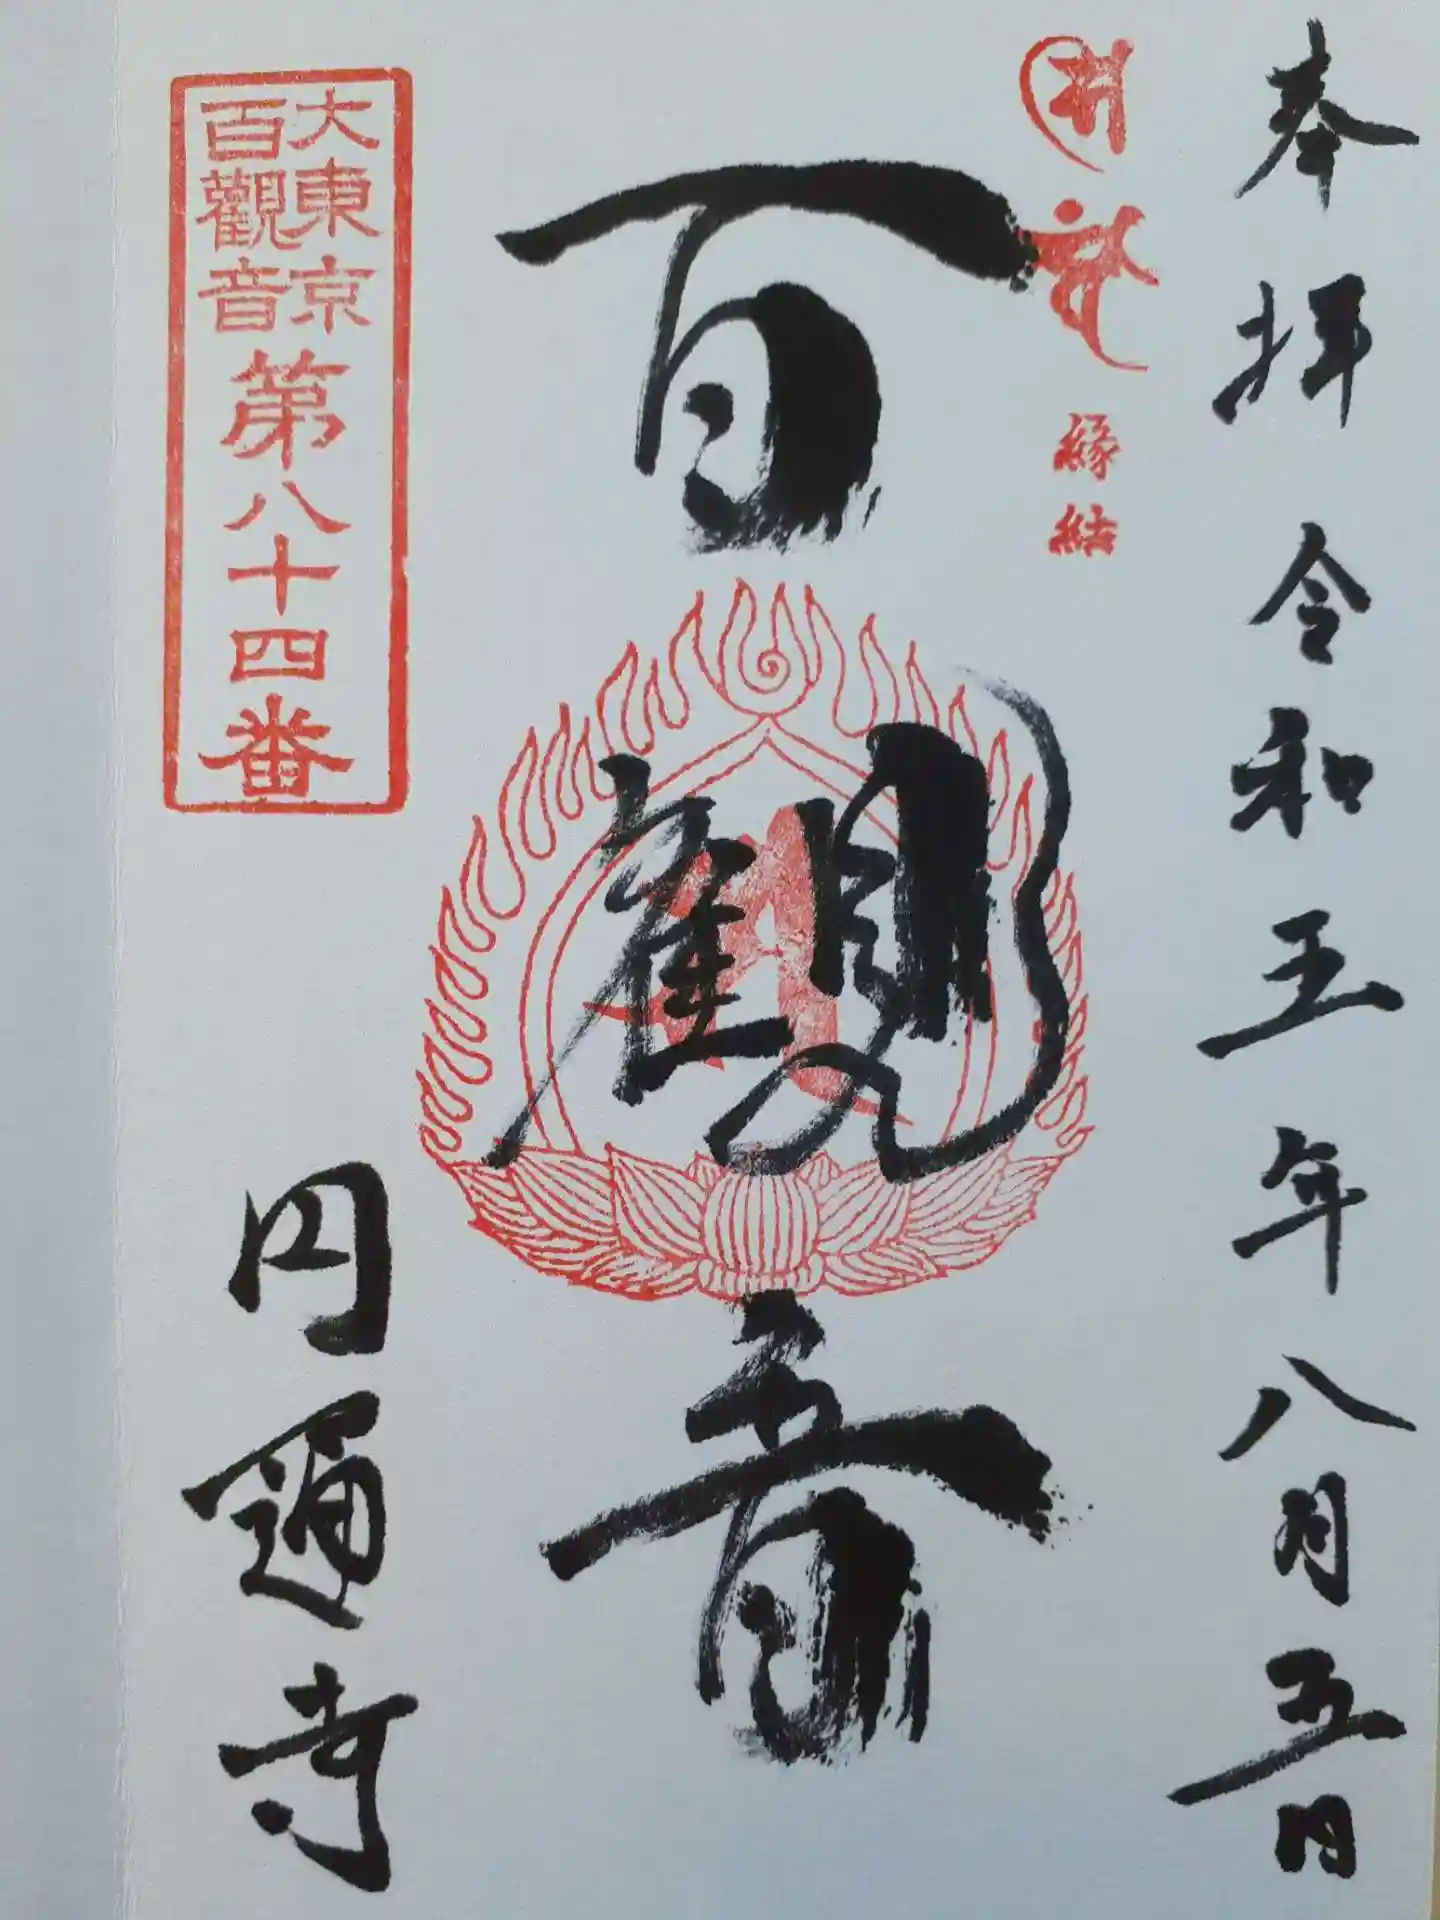 奉拝 令和五年八月五日
縁結
百観音
大東京
百觀音
第八十四番
円通寺